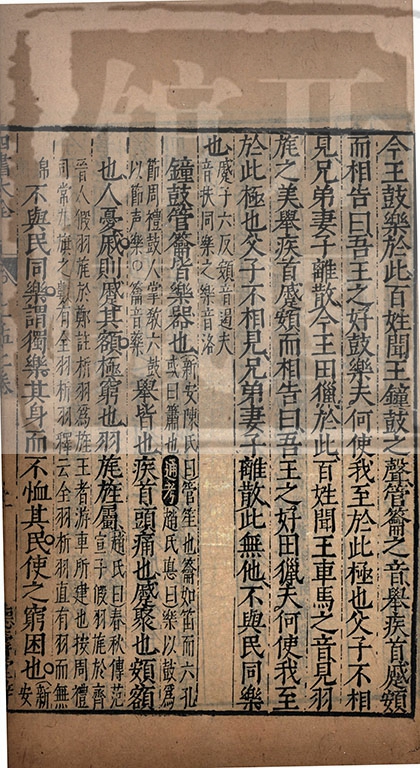 今王鼓樂於此百姓聞王鐘鼓之聲管籥之音舉疾首蹙頞
而相告曰吾王之好鼓樂夫何使我至於此極也父子不相
見兄弟妻子離散今王田獵於此百姓聞王車馬之音見羽
旄之美舉疾首蹙頞而相告曰吾王之好田獵夫何使我至
於此極也父子不相見兄弟妻子離散此無他不與民同樂
也蹙子六反頞音遏夫音扶同樂之樂音洛
鐘鼓管籥皆樂器也新安陳氏曰管笙也籥如笛而六孔或曰簫也通考趙氏悳曰樂以鼓爲
節周禮鼓人掌教六鼓以節声樂○籥音藥舉皆也疾首頭痛也蹙聚也頞額
也人憂戚則蹙其額極窮也羽旄旌屬趙氏曰春秋傳范宣子假羽旄於齊
晉人假羽旄於鄭註析羽爲旌王者游車所建也按周禮司常九旗之數有全羽析羽釋云全羽析羽直有羽而無
帛不與民同樂謂獨樂其身而不恤其民使之窮困也新安